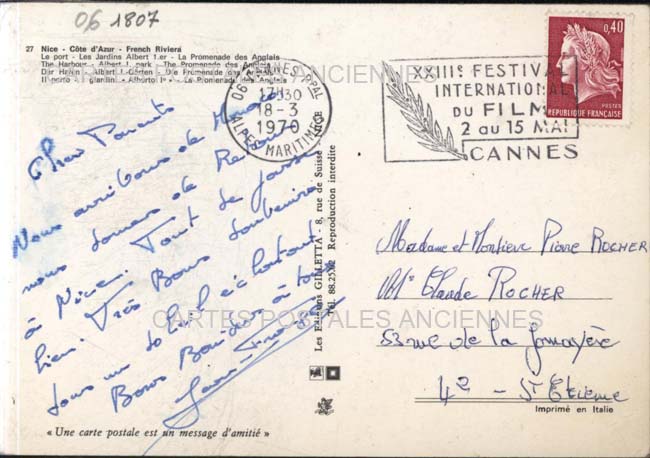 06 1807
27 Nice - Côte d'Azur - French Riviera
Le port - Les Jardins Albert 1.er - La Promenade des Anglais
The Harbour - Albert I. park - The Promenade des Anglais
Der Hafen - Albert I. Garten - Die Promenade des Anglais
Il porto - I giardini Alberto I° - La Promenade des Anglais
Chers Parents
Nous arrivons de Monaco
nous sommes de Retour
à Nice. Tout se passe
bien. Très Bons Souvenirs
sous un soleil
Bons Baisers à tous
06 CANNES PPAL
17H30
18-3
1970
ALPES MARITIMES
XXIIIe FESTIVAL
INTERNATIONAL
DU FILM
2 au 15 MAI
CANNES
0,40
POSTES
REPUBLIQUE FRANÇAISE
Les Editions GILLETTA - 8, rue de Suisse - NICE
Tél. 88.25.02 Reproduction interdite
Madame et Monsieur Pierre ROCHER
Claude ROCHER
53 rue de la
42 - St Etienne
CARTES POSTALES ANCIENNES
CARTES POSTALES ANCIENNES
Imprimé en Italie
« Une carte postale est un message d'amitié »